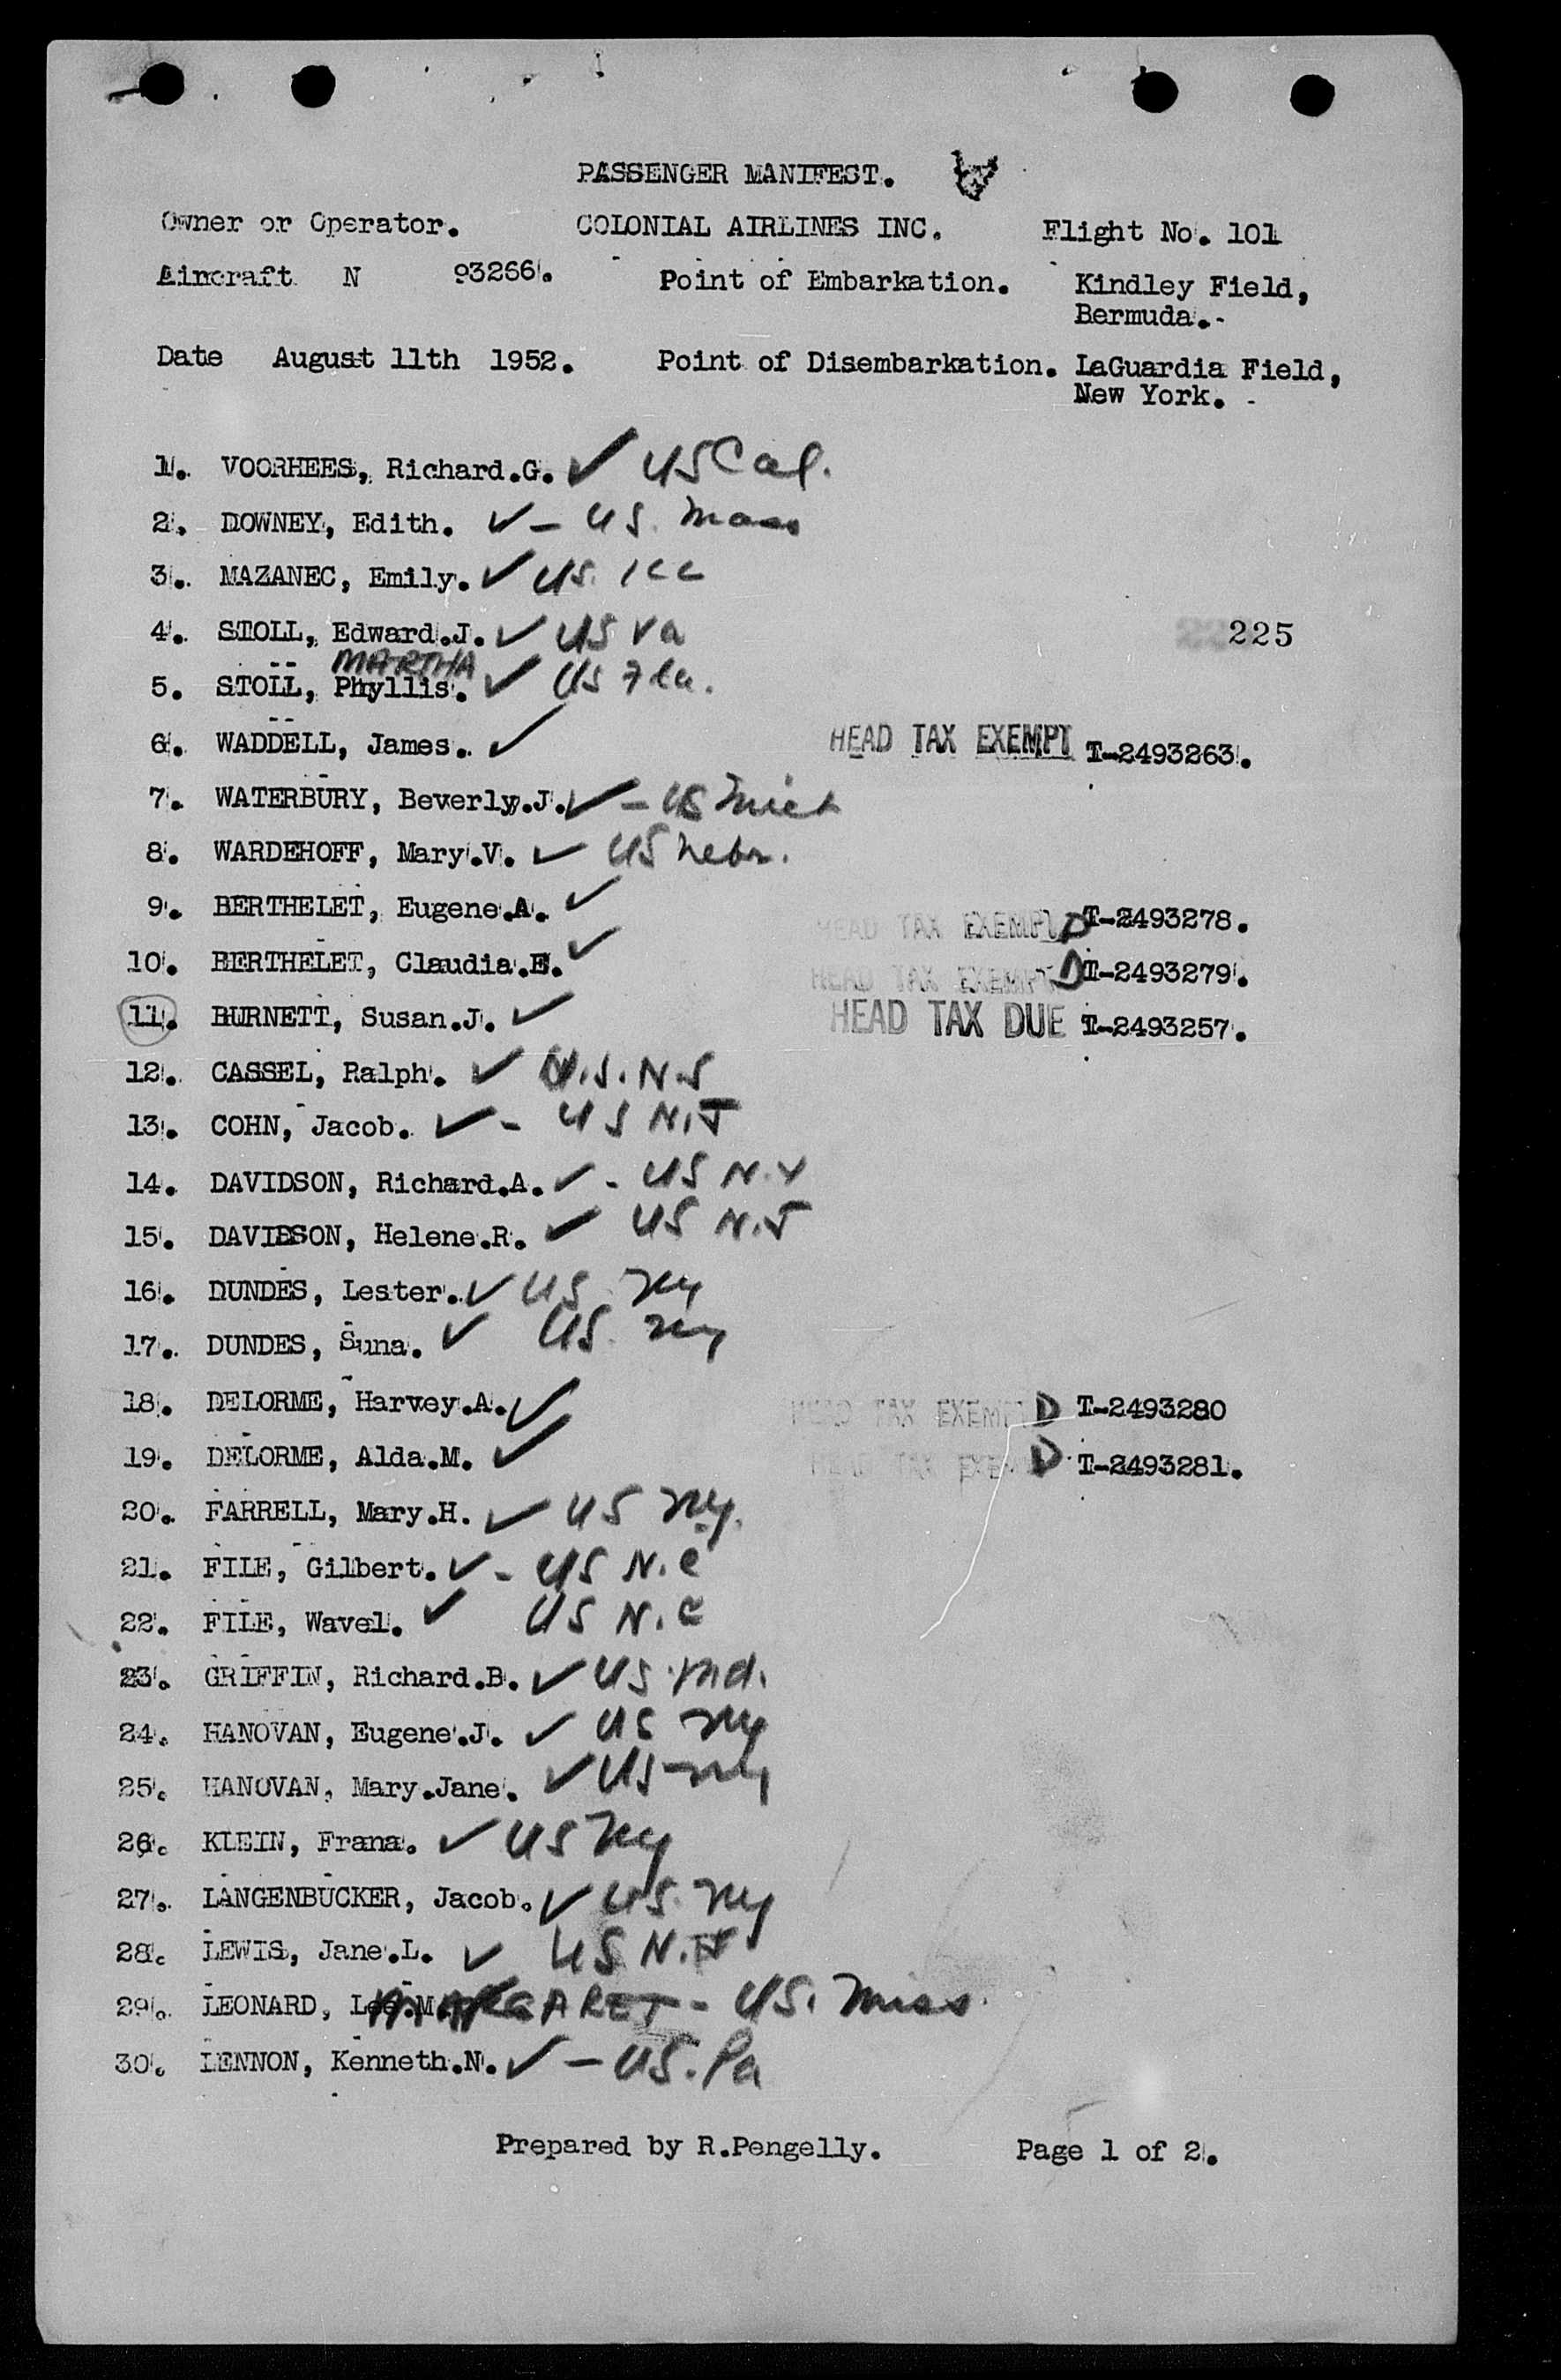 PASSENGER MANIFEST.
Owner or Operator. COLONIAL AIRLINES INC. Flight No. 101
Aircraft N 93266. Point of Embarkation. Kindley Field,
Bermuda.-
Date August 11th 1952. Point of Disembarkation. LaGuardia Field,
New York. -
1. VOORHEES, Richard.G. ✓ US Cal.
2. DOWNEY, Edith. ✓ - US. Mass
3. MAZANEC, Emily. ✓ US. Ill
4. STOLL, Edward.J. ✓ US Va
225
MARTHA
5. STOLL, Phyllis. ✓ US Fla.
6. WADDELL, James. ✓ HEAD TAX EXEMPT T-2493263.
7. WATERBURY, Beverly.J. ✓ - US Mich
8. WARDEHOFF, Mary.V. ✓ US Nebr.
9. BERTHELET, Eugene.A. ✓ HEAD TAX EXEMPT D T-2493278.
10. BERTHELET, Claudia.E. ✓ HEAD TAX EXEMPT D T-2493279.
11. BURNETT, Susan.J. ✓ HEAD TAX DUE T-2493257.
12. CASSEL, Ralph. ✓ U.S. N.J
13. COHN, Jacob. ✓ - US N.J
14. DAVIDSON, Richard.A. ✓ - US N.Y
15. DAVIDSON, Helene.R. ✓ US N.J
16. DUNDES, Lester. ✓ US NY
17. DUNDES, Suna. ✓ US. NY
18. DELORME, Harvey.A. ✓ HEAD TAX EXEMPT D T-2493280
19. DELORME, Alda.M. ✓ HEAD TAX EXEM D T-2493281.
20. FARRELL, Mary.H. ✓ US NY.
21. FILE, Gilbert. ✓ - US N.C
22. FILE, Wavel. ✓ US N.C
23. GRIFFIN, Richard.B. ✓ US Md.
24. HANOVAN, Eugene.J. ✓ US NY
25. HANOVAN, Mary.Jane. ✓ US NY
26. KLEIN, Frana. ✓ US NY
27. LANGENBUCKER, Jacob. ✓ US. NY
28. LEWIS, Jane.L. ✓ US N.J
29. LEONARD, MARGARET - US. Miss.
30. LENNON, Kenneth.N. ✓ - US. Pa
Prepared by R.Pengelly. Page 1 of 2.